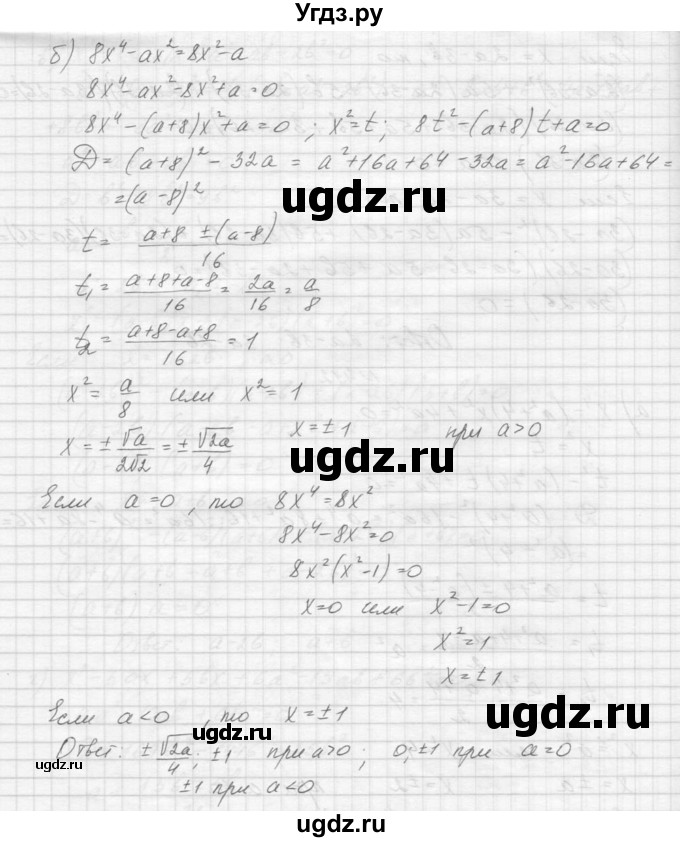 Угдз.ру
б) 8x⁴-ax²=8x²-a
8x⁴-ax²-8x²+a=0
8x⁴-(a+8)x²+a=0; x²=t; 8t²-(a+8)t+a=0
D=(a+8)²-32a=a²+16a+64-32a=a²-16a+64=
=(a-8)²
ugdz.ru
t=(a+8±(a-8))/16
t₁=(a+8+a-8)/16=2a/16=a/8
ugdz.ru
t₂=(a+8-a+8)/16=1
x²=a/8 или x²=1
x=±√a/2√2=±√2a/4 x=±1 при a>0
ugdz.ru
Если a=0, то 8x⁴=8x²
8x⁴-8x²=0
8x²(x²-1)=0
ugdz.ru
x=0 или x²-1=0
x²=1
x=±1
Если a<0, то x=±1
ugdz.ru
Ответ: ±√2a/4; ±1 при a>0; 0,±1 при a=0
ugdz.ru
ugdz.ru
±1 при a<0
ugdz.ru